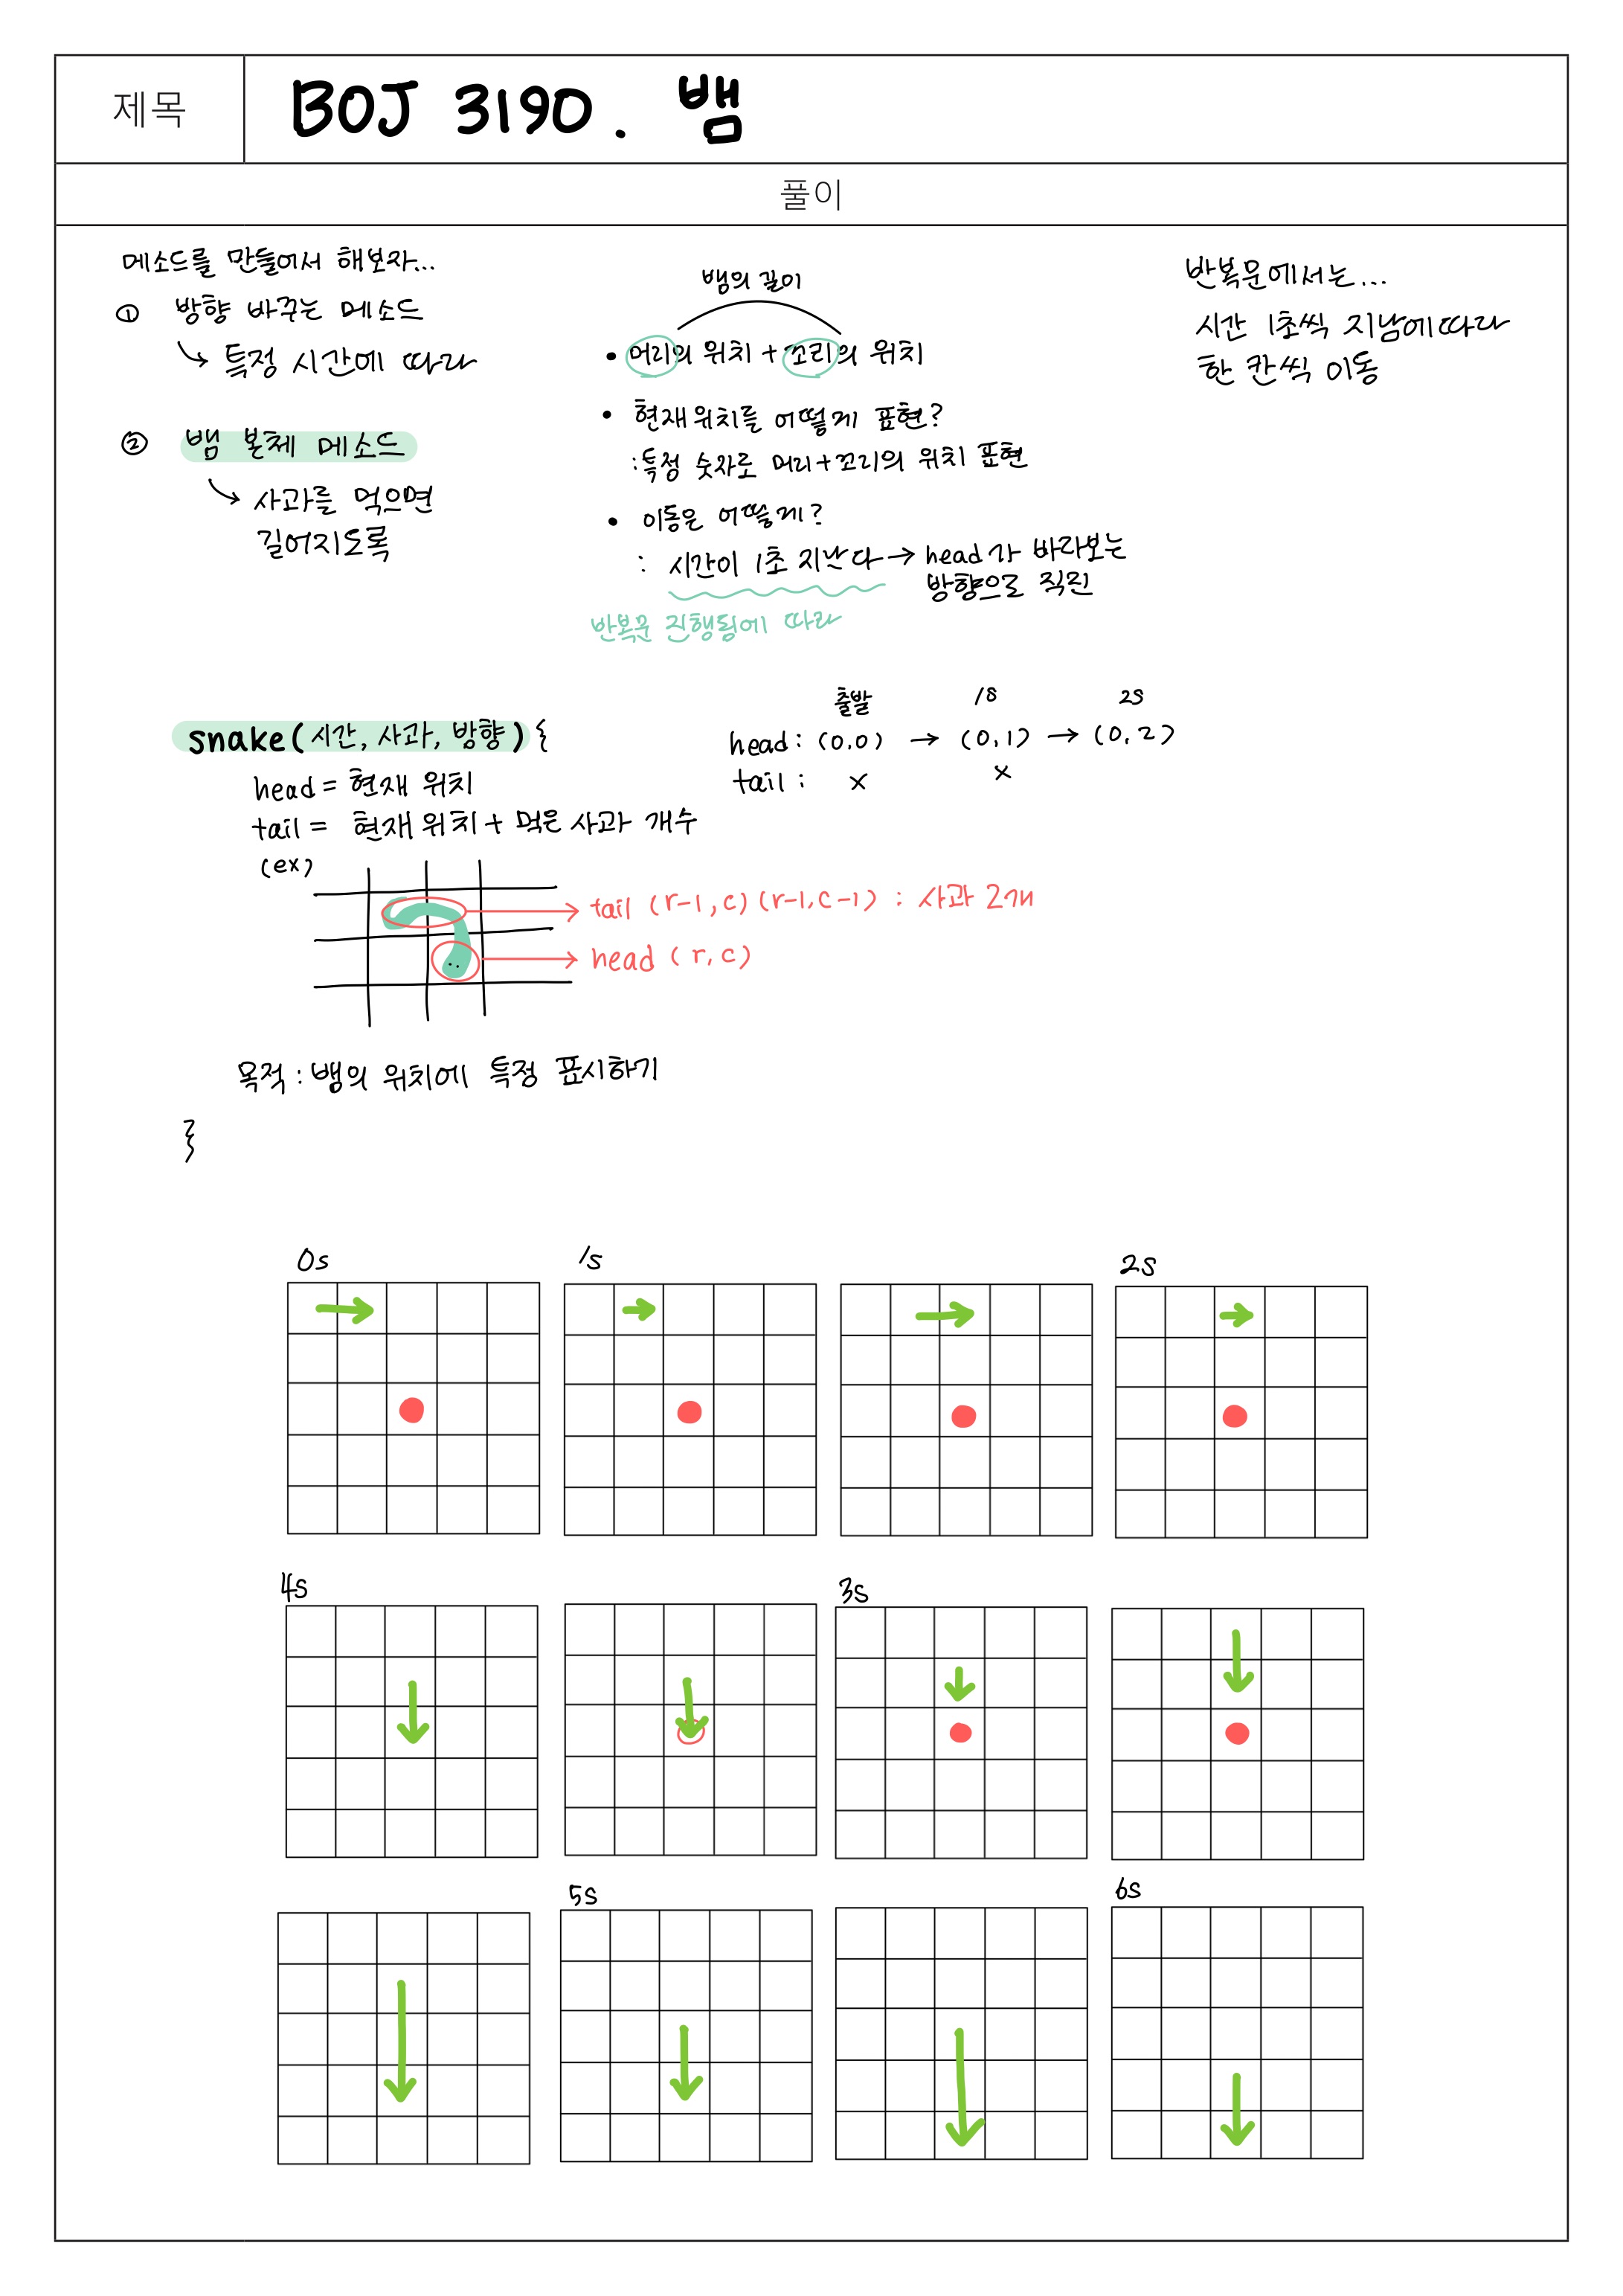 제목
BOJ 3190. 뱀
풀이
메소드를 만들어서 해보자...
① 방향 바꾸는 메소드
↳ 특정 시간에 따라
② 뱀 본체 메소드
↳ 사과를 먹으면
길어지도록
뱀의 길이
• 머리의 위치 + 꼬리의 위치
• 현재위치를 어떻게 표현?
: 특정 숫자로 머리+꼬리의 위치 표현
• 이동은 어떻게?
: 시간이 1초 지난다 → head가 바라보는
방향으로 직진
반복문 진행됨에 따라
반복문에서는...
시간 1초씩 지남에 따라
한 칸씩 이동
snake(시간, 사과, 방향) {
head = 현재 위치
tail = 현재 위치 + 먹은 사과 개수
(ex)
tail (r-1, c) (r-1, c-1) : 사과 2개
head (r, c)
목적 : 뱀의 위치에 특정 표시하기
}
출발 1s 2s
head : (0,0) → (0,1) → (0,2)
tail : x x
0s 1s 2s
4s 3s
5s 6s